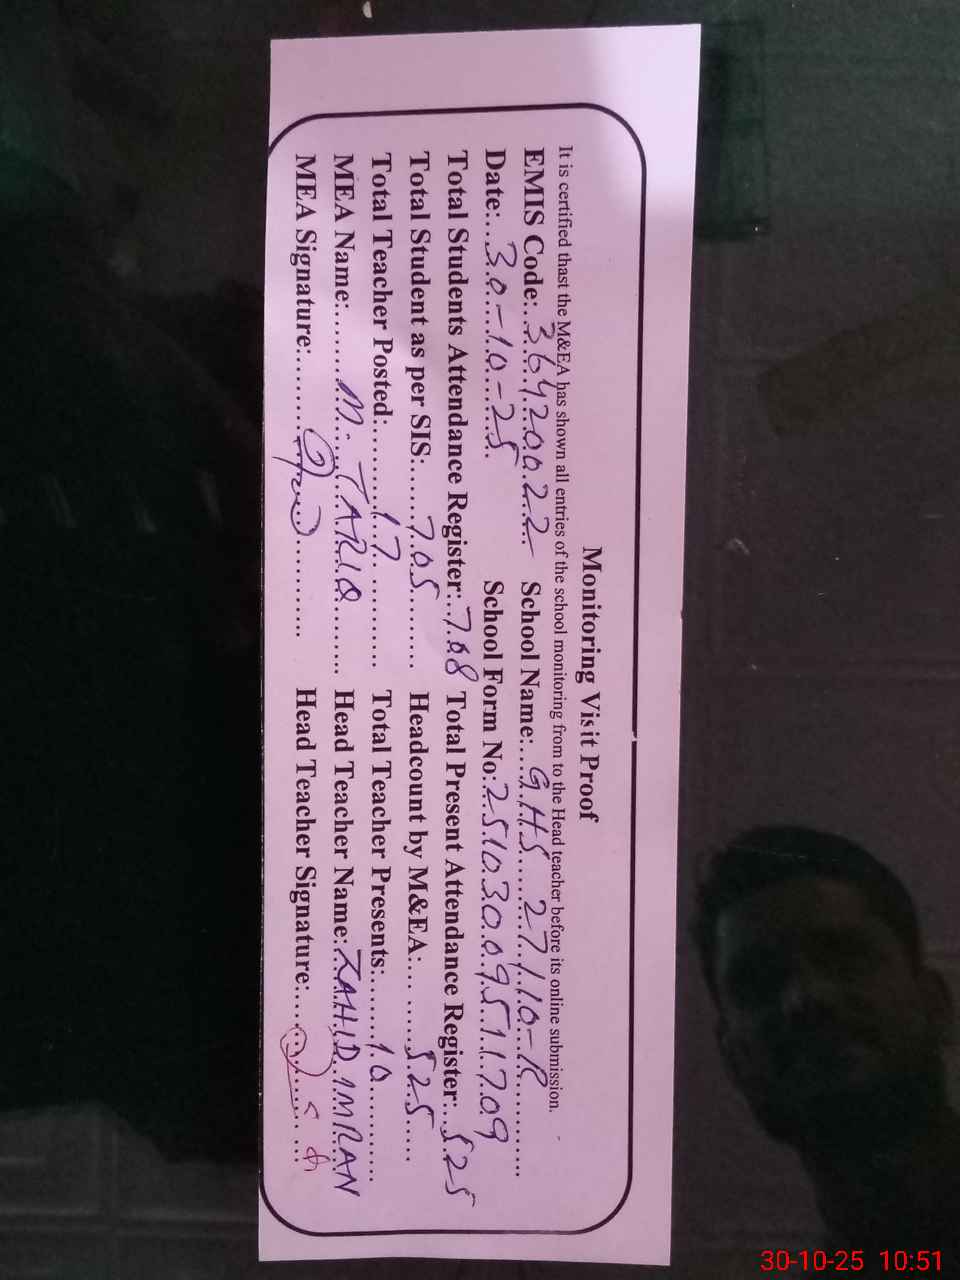 Monitoring Visit Proof
It is certified thast the M&EA has shown all entries of the school monitoring from to the Head teacher before its online submission.
EMIS Code:..36420022 School Name:....GHS 27/10-R
Date:...30-10-25 School Form No:2510300951709
Total Students Attendance Register:..708 Total Present Attendance Register:..525
Total Student as per SIS:......705 Headcount by M&EA:... ......525
Total Teacher Posted:.........17 Total Teacher Presents:......10
MEA Name:........M. TARIQ Head Teacher Name:ZAHID IMRAN
MEA Signature:......... Head Teacher Signature:....
30-10-25 10:51